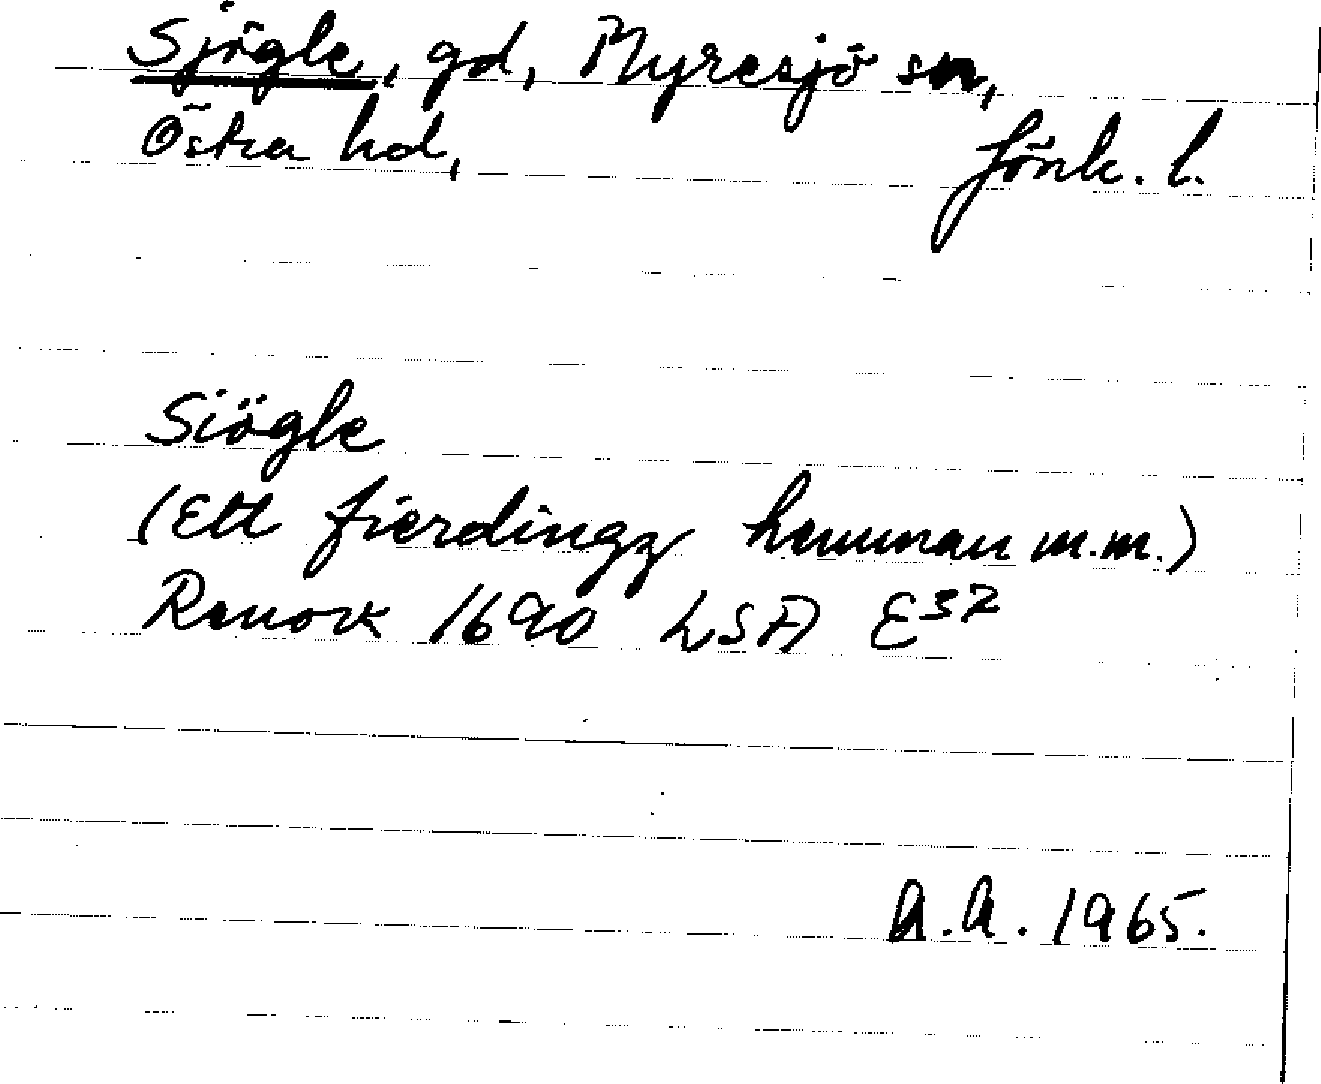 Sjögle, gd, Myresjö sn,
Östra hd, Jönk. l.
Siögle
(Ett fierdingz hemman m.m.)
Renov 1690 LSA E³²
A.A. 1965.